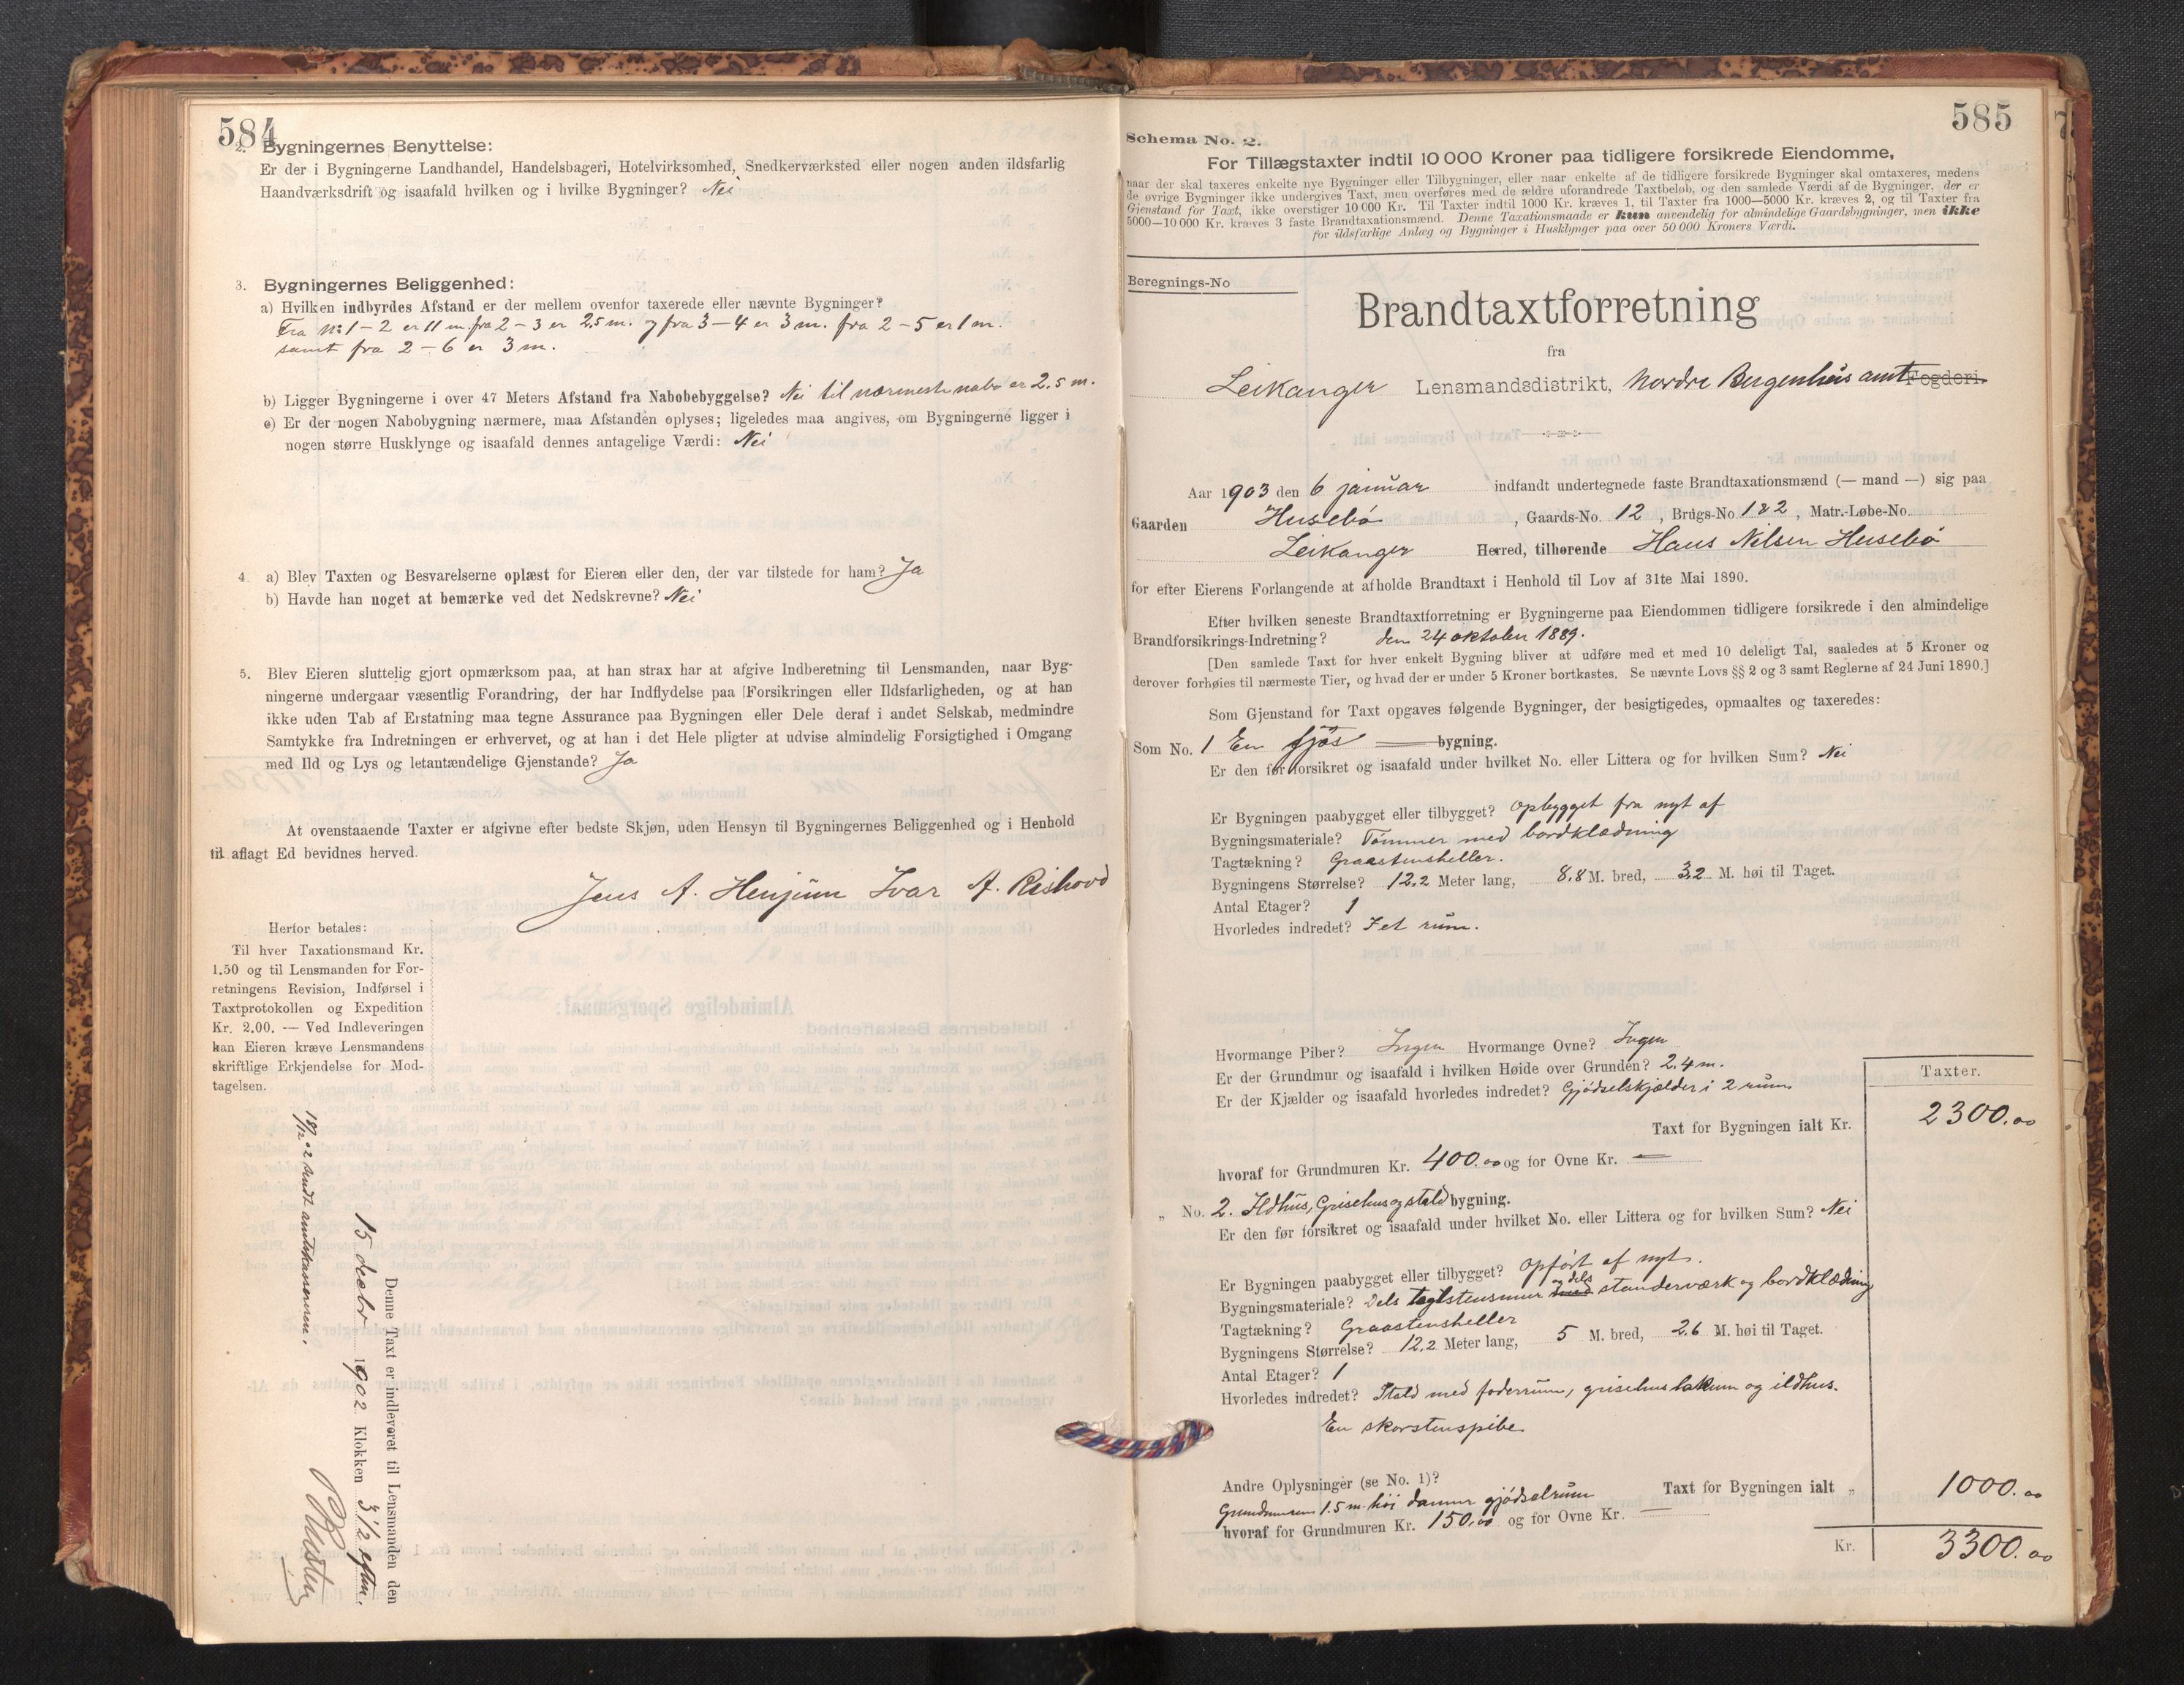 584
2. Bygningernes Benyttelse:
Er der i Bygningerne Landhandel, Handelsbageri, Hotelvirksomhed, Snedkerværksted eller nogen anden ildsfarlig
Haandværksdrift og isaafald hvilken og i hvilke Bygninger? Nei
3. Bygningernes Beliggenhed:
a) Hvilken indbyrdes Afstand er der mellem ovenfor taxerede eller nævnte Bygninger?
Fra No 1 – 2 er 11 m. fra 2 – 3 er 2,5 m. og fra 3 – 4 er 3 m. fra 2 – 5 er 1 m.
samt fra 2 – 6 er 3 m.
b) Ligger Bygningerne i over 47 Meters Afstand fra Nabobebyggelse? Nei til nærmeste nabo er 2.5 m.
c) Er der nogen Nabobygning nærmere, maa Afstanden oplyses; ligeledes maa angives, om Bygningerne ligger i
nogen større Husklynge og isaafald dennes antagelige Værdi: Nei
4. a) Blev Taxten og Besvarelserne oplæst for Eieren eller den, der var tilstede for ham? Ja
b) Havde han noget at bemærke ved det Nedskrevne? Nei
5. Blev Eieren sluttelig gjort opmærksom paa, at han strax har at afgive Indberetning til Lensmanden, naar Byg-
ningerne undergaar væsentlig Forandring, der har Indflydelse paa Forsikringen eller Ildsfarligheden, og at han
ikke uden Tab af Erstatning maa tegne Assurance paa Bygningen eller Dele deraf i andet Selskab, medmindre
Samtykke fra Indretningen er erhvervet, og at han i det Hele pligter at udvise almindelig Forsigtighed i Omgang
med Ild og Lys og letantændelige Gjenstande? Ja
At ovenstaaende Taxter er afgivne efter bedste Skjøn, uden Hensyn til Bygningernes Beliggenhed og i Henhold
til aflagt Ed bevidnes herved.
Jens A. Henjum Ivar A. Rishovd
Herfor betales:
Til hver Taxationsmand Kr.
1.50 og til Lensmanden for For-
retningens Revision, Indførsel i
Taxtprotokollen og Expedition
Kr. 2.00. — Ved Indleveringen
kan Eieren kræve Lensmandens
skriftlige Erkjendelse for Mod-
tagelsen.
Denne Taxt er indleveret til Lensmanden den
15 decbr 1902 Klokken 3 1/2 eftm.
18/12 02 sendt amtskassereren.
585
Schema No. 2.
For Tillægstaxter indtil 10 000 Kroner paa tidligere forsikrede Eiendomme,
naar der skal taxeres enkelte nye Bygninger eller Tilbygninger, eller naar enkelte af de tidligere forsikrede Bygninger skal omtaxeres, medens
de øvrige Bygninger ikke undergives Taxt, men overføres med de ældre uforandrede Taxtbeløb, og den samlede Værdi af de Bygninger, der er
Gjenstand for Taxt, ikke overstiger 10 000 Kr. Til Taxter indtil 1000 Kr. kræves 1, til Taxter fra 1000—5000 Kr. kræves 2, og til Taxter fra
5000—10 000 Kr. kræves 3 faste Brandtaxationsmænd. Denne Taxationsmaade er kun anvendelig for almindelige Gaardsbygninger, men ikke
for ildsfarlige Anlæg og Bygninger i Husklynger paa over 50 000 Kroners Værdi.
Beregnings-No
Brandtaxtforretning
fra
Leikanger Lensmandsdistrikt, Nordre Bergenhus amt Fogderi.
Aar 1903 den 6 januar indfandt undertegnede faste Brandtaxationsmænd (— mand —) sig paa
Gaarden Husebø, Gaards-No. 12, Brugs-No 1 & 2, Matr.-Løbe-No.
Leikanger Herred, tilhørende Hans Nilsen Husebø
for efter Eierens Forlangende at afholde Brandtaxt i Henhold til Lov af 31te Mai 1890.
Efter hvilken seneste Brandtaxtforretning er Bygningerne paa Eiendommen tidligere forsikrede i den almindelige
Brandforsikrings-Indretning? den 24 oktober 1889.
[Den samlede Taxt for hver enkelt Bygning bliver at udføre med et med 10 deleligt Tal, saaledes at 5 Kroner og
derover forhøies til nærmeste Tier, og hvad der er under 5 Kroner bortkastes. Se nævnte Lovs §§ 2 og 3 samt Reglerne af 24 Juni 1890.]
Som Gjenstand for Taxt opgaves følgende Bygninger, der besigtigedes, opmaaltes og taxeredes:
Som No. 1 En fjøs bygning.
Er den før forsikret og isaafald under hvilket No. eller Littera og for hvilken Sum? Nei
Er Bygningen paabygget eller tilbygget? Opbygget fra nyt af
Bygningsmateriale? Tømmer med bordklædning
Tagtækning? Graastensheller.
Bygningens Størrelse? 12,2 Meter lang, 8,8 M. bred, 3,2 M. høi til Taget.
Antal Etager? 1
Hvorledes indredet? I et rum.
Hvormange Piber? Ingen Hvormange Ovne? Ingen
Er der Grundmur og isaafald i hvilken Høide over Grunden? 2.4 m.
Er der Kjælder og isaafald hvorledes indredet? Gjødselskjælder i 2 rum
Taxter.
Taxt for Bygningen ialt Kr. 2300.00
hvoraf for Grundmuren Kr. 400.00 og for Ovne Kr. —
„ No. 2. Ildhus, Grisehus og stald bygning.
Er den før forsikret og isaafald under hvilket No. eller Littera og for hvilken Sum? Nei
Er Bygningen paabygget eller tilbygget? Opført af nyt.
Bygningsmateriale? Dels teglstensmur med og dels standerværk og bordklædning
Tagtækning? Graastensheller
Bygningens Størrelse? 12,2 Meter lang, 5 M. bred, 2.6 M. høi til Taget.
Antal Etager? 1
Hvorledes indredet? Stald med foderrum, grisehus og ildhus.
En skorstenspibe
Andre Oplysninger (se No. 1)?
Grundmuren 1.5 m høi danner gjødselrum Taxt for Bygningen ialt „ 1000.00
hvoraf for Grundmuren Kr. 150.00 og for Ovne Kr. —
Kr. 3300.00